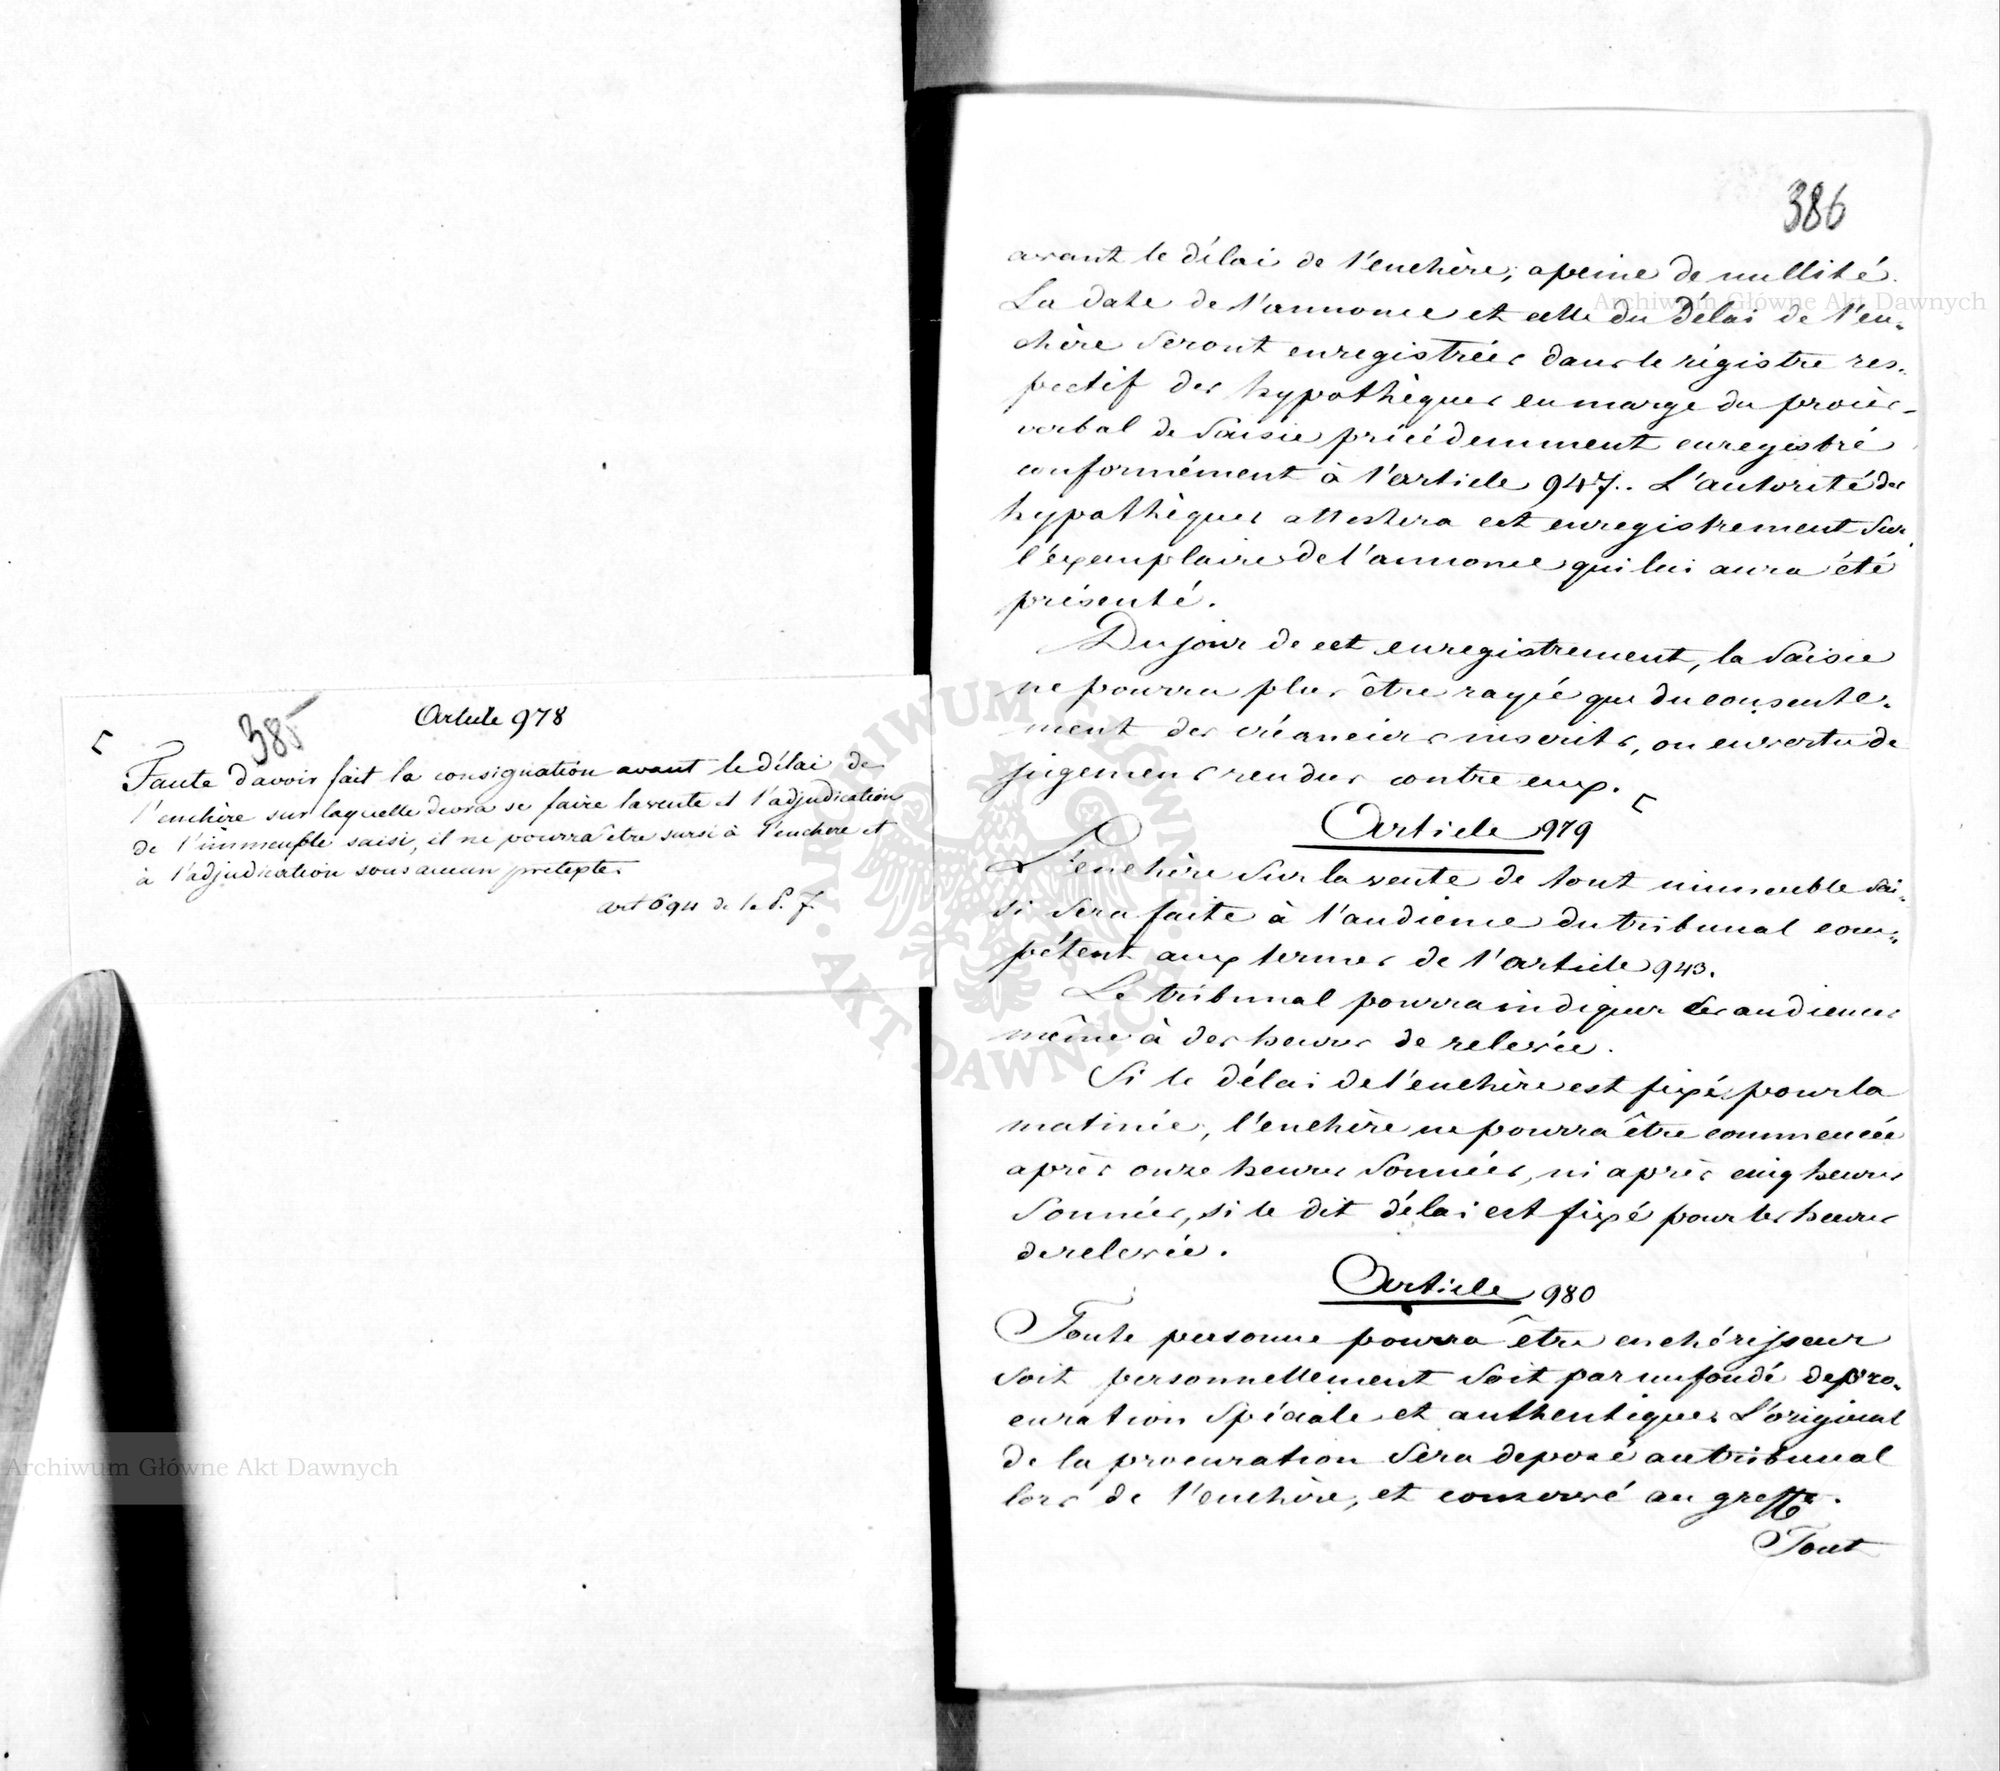 385
Article 978
Faute d'avoir fait la consignation avant le délai de
l'enchère sur laquelle devra se faire la vente et l'adjudication
de l'immeuble saisi, il ne pourra être sursi à l'enchere et
à l'adjudication sous aucun pretexte.
art 694 de la P. F.
386
avant le délai de l'enchère, a peine de nullité.
La date de l'annonce et celle du délai de l'en-
chère seront enregistrées dans le régistre res-
pectif des hypothèques en marge du procès-
verbal de saisie précédemment enregistré
conformément à l'article 947. L'autorité des
hypothèques attestera cet enregistrement sur
l'exemplaire de l'annonce qui lui aura été
présenté.
Du jour de cet enregistrement, la saisie
ne pourra plus être rayée que du consente-
ment des créanciers inscrits, ou en vertu de
jugemens rendus contre eux.
Article 979
L'enchère sur la vente de tout immeuble sai-
si sera faite à l'audience du tribunal com-
pétent aux termes de l'article 943.
Le tribunal pourra indiquer des audiences
même à des heures de relevée.
Si le délai de l'enchère est fixé pour la
matinée, l'enchère ne pourra être commencée
après onze heures sonnées, ni après cinq heures
sonnées, si le dit délai est fixé pour les heures
de relevée.
Article 980
Toute personne pourra être enchérisseur
soit personnellement soit par un fondé de pro-
curation spéciale et authentique. L'original
de la procuration sera deposé au tribunal
lors de l'enchère, et conservé au greffe.
Tout
Archiwum Główne Akt Dawnych
Archiwum Główne Akt Dawnych
ARCHIWUM GŁÓWNE AKT DAWNYCH